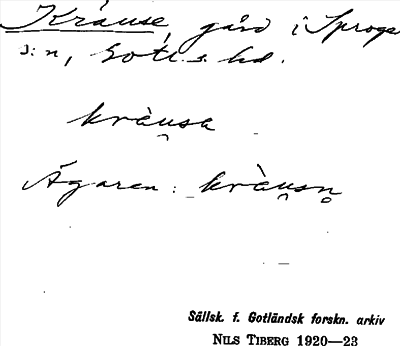 Kräuse, gård i Sproge
s:n, Gotl. s. hd.
kràu̯sa
Ägaren: kràu̯sn̥
Sällsk. f. Gotländsk forskn. arkiv
NILS TIBERG 1920—23